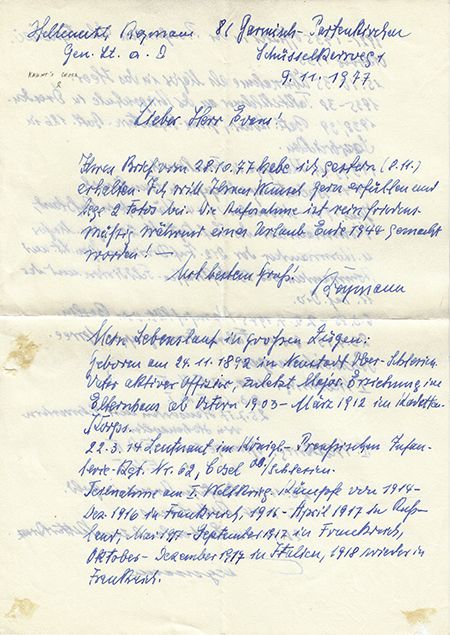 Hellmuth Reymann 81 Garmisch-Partenkirchen
Gen. Lt. a. D Schüsselkarweg 1
KNIGHT'S CROSS 9.11.1977
Lieber Herr Evans!
Ihren Brief vom 28.10.77 habe ich gestern (8.11.)
erhalten. Ich will Ihren Wunsch gern erfüllen und
lege 2 Fotos bei. Die Aufnahme ist rein friedens-
mäßig während eines Urlaub Ende 1944 gemacht
worden! —
Mit bestem Gruß!
Reymann
Mein Lebenslauf in großen Zügen:
Geboren am 24.11.1892 in Neustadt Ober-Schlesien.
Vater aktiver Offizier, zuletzt Major. Erziehung im
Elternhaus ab Ostern 1903 - März 1912 im Kadetten-
Korps.
22.3.14 Leutnant im Königl. Preußischen Infan-
terie-Rgt. Nr. 62, Cosel O/Schlesien.
Teilnahme am I. Weltkrieg. Kämpfe von 1914-
Dez. 1916 in Frankreich, 1916 - April 1917 in Ruß-
land, Mai 1917 - September 1917 in Frankreich,
Oktober - Dezember 1917 in Italien, 1918 wieder in
Frankreich.